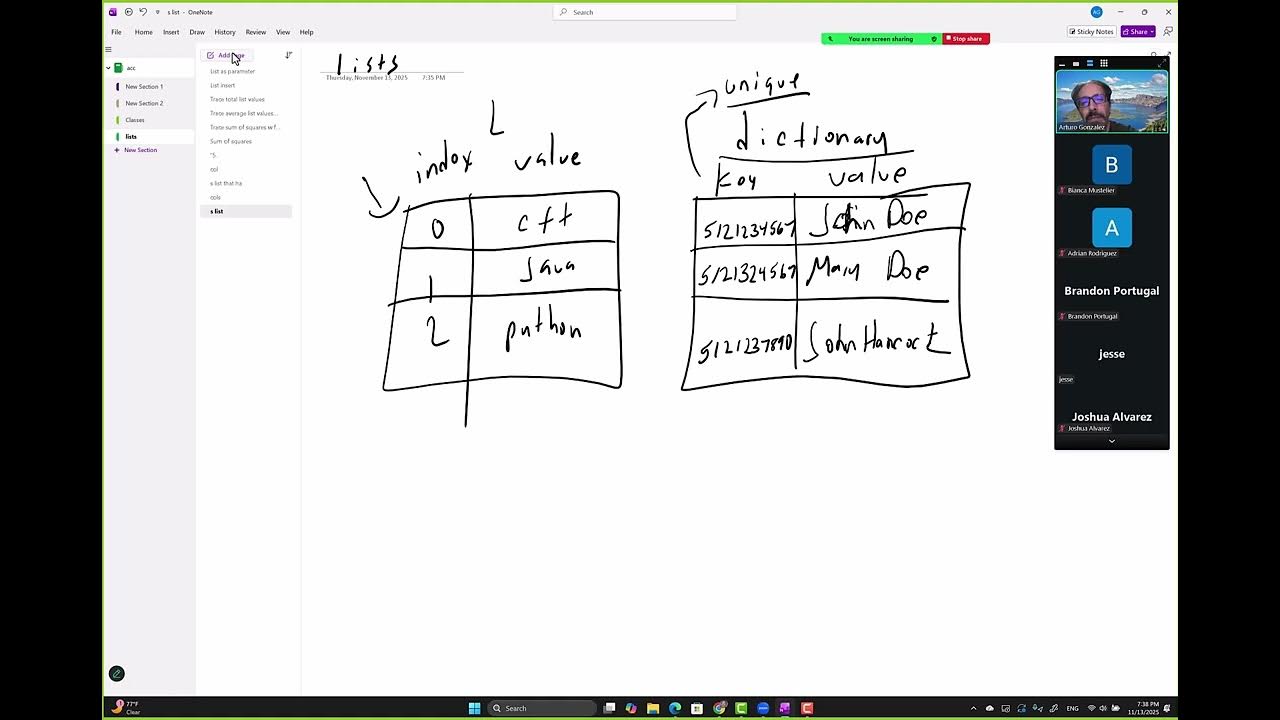 s list - OneNote
Search
AG
File Home Insert Draw History Review View Help
Sticky Notes
Share
You are screen sharing
Stop share
acc
New Section 1
New Section 2
Classes
lists
New Section
List as parameter
List insert
Trace total list values
Trace average list values...
Trace sum of squares w f...
Sum of squares
"S.
col
s list that ha
cols
s list
Lists
Thursday, November 13, 2025 7:35 PM
L
index value
0 c++
1 Java
2 python
unique
dictionary
key value
5121234567 John Doe
5121324567 Mary Doe
5121237890 John Hancock
Arturo Gonzalez
B
Bianca Mustelier
A
Adrian Rodriguez
Brandon Portugal
Brandon Portugal
jesse
jesse
Joshua Alvarez
Joshua Alvarez
77°F
Clear
Search
ENG
7:38 PM
11/13/2025